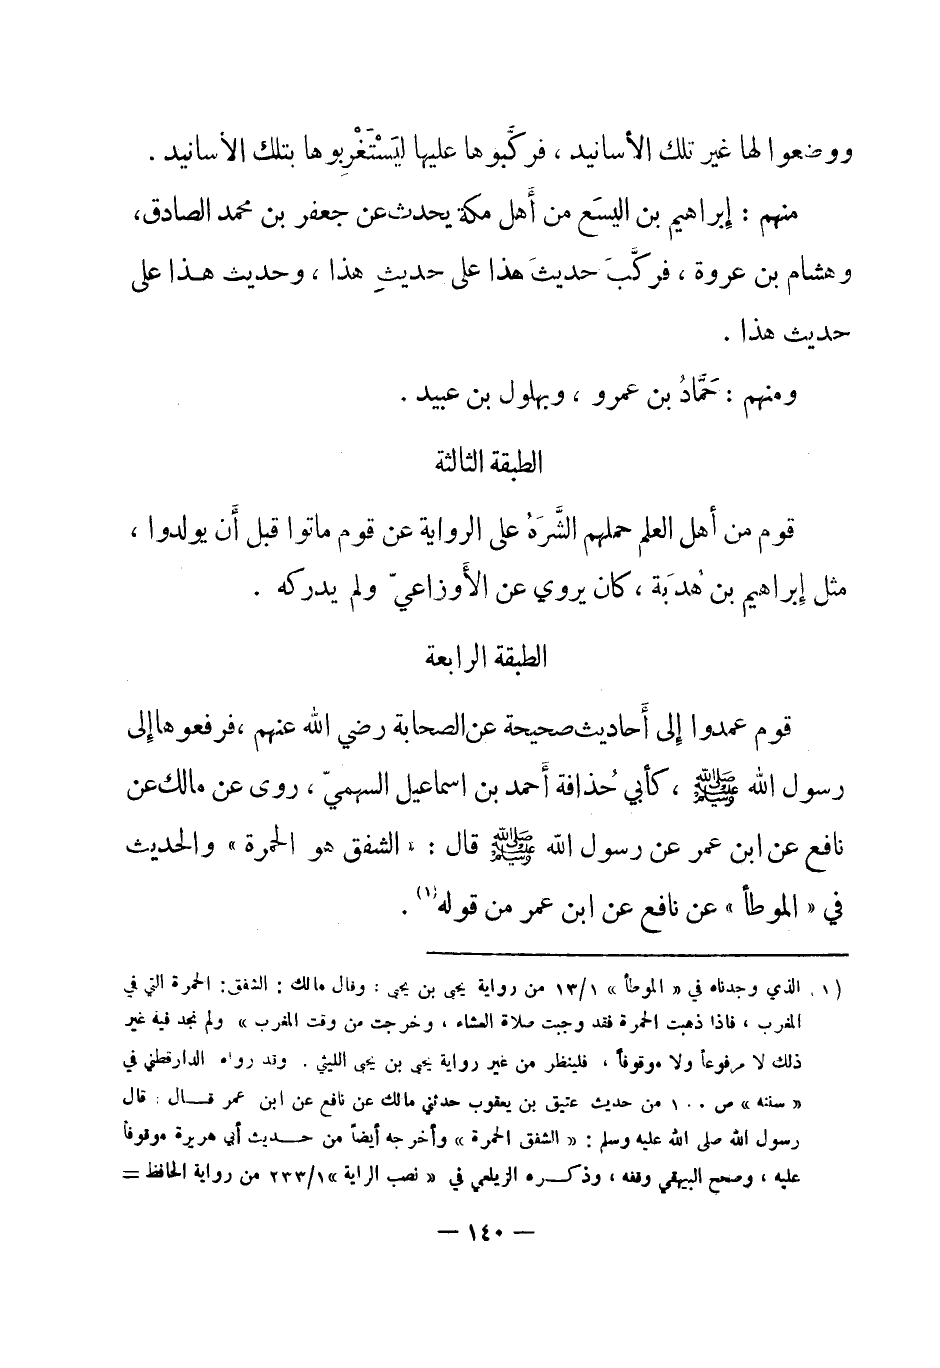 ووضعوا لها غير تلك الأسانيد ، فركَّبوها عليها ليَسْتَغْرِبوها بتلك الأسانيد .
منهم : إبراهيم بن اليسَع من أهل مكة يحدث عن جعفر بن محمد الصادق،
وهشام بن عروة ، فركَّبَ حديثَ هذا على حديثِ هذا ، وحديث هـذا على
حديث هذا .
ومنهم : حَمَّادُ بن عمرو ، وبهلول بن عبيد .
الطبقة الثالثة
قوم من أهل العلم حملهم الشَّرَهُ على الرواية عن قوم ماتوا قبل أن يولدوا ،
مثل إبراهيم بن هُدبَة ، كان يروي عن الأوزاعيّ ولم يدركه .
الطبقة الرابعة
قوم عمدوا إلى أحاديث صحيحة عن الصحابة رضي الله عنهم ،فرفعوها إلى
رسول الله ﷺ ، كأبي حُذافة أحمد بن اسماعيل السهميّ ، روى عن مالك عن
نافع عن ابن عمر عن رسول الله ﷺ قال : « الشفق هو الحمرة » والحديث
في « الموطأ » عن نافع عن ابن عمر من قوله(١) .
(١) الذي وجدناه في « الموطأ » ١٣/١ من رواية يحيى بن يحيى : وقال مالك : الشفق: الحمرة التي في
المغرب ، فاذا ذهبت الحمرة فقد وجبت صلاة العشاء ، وخرجت من وقت المغرب » ولم نجد فيه غير
ذلك لا مرفوعاً ولا موقوفاً ، فلينظر من غير رواية يحيى بن يحيى الليثي . وقد رواه الدارقطني في
« سننه » ص ١٠٠ من حديث عتيق بن يعقوب حدثني مالك عن نافع عن ابن عمر قـــال : قال
رسول الله صلى الله عليه وسلم : « الشفق الحمرة » وأخرجه أيضاً من حـــديث أبي هريرة موقوفاً
عليه ، وصحح البيهقي وقفه ، وذكـــره الزيلعي في « نصب الراية »٢٣٣/١ من رواية الحافظ =
— ١٤٠ —